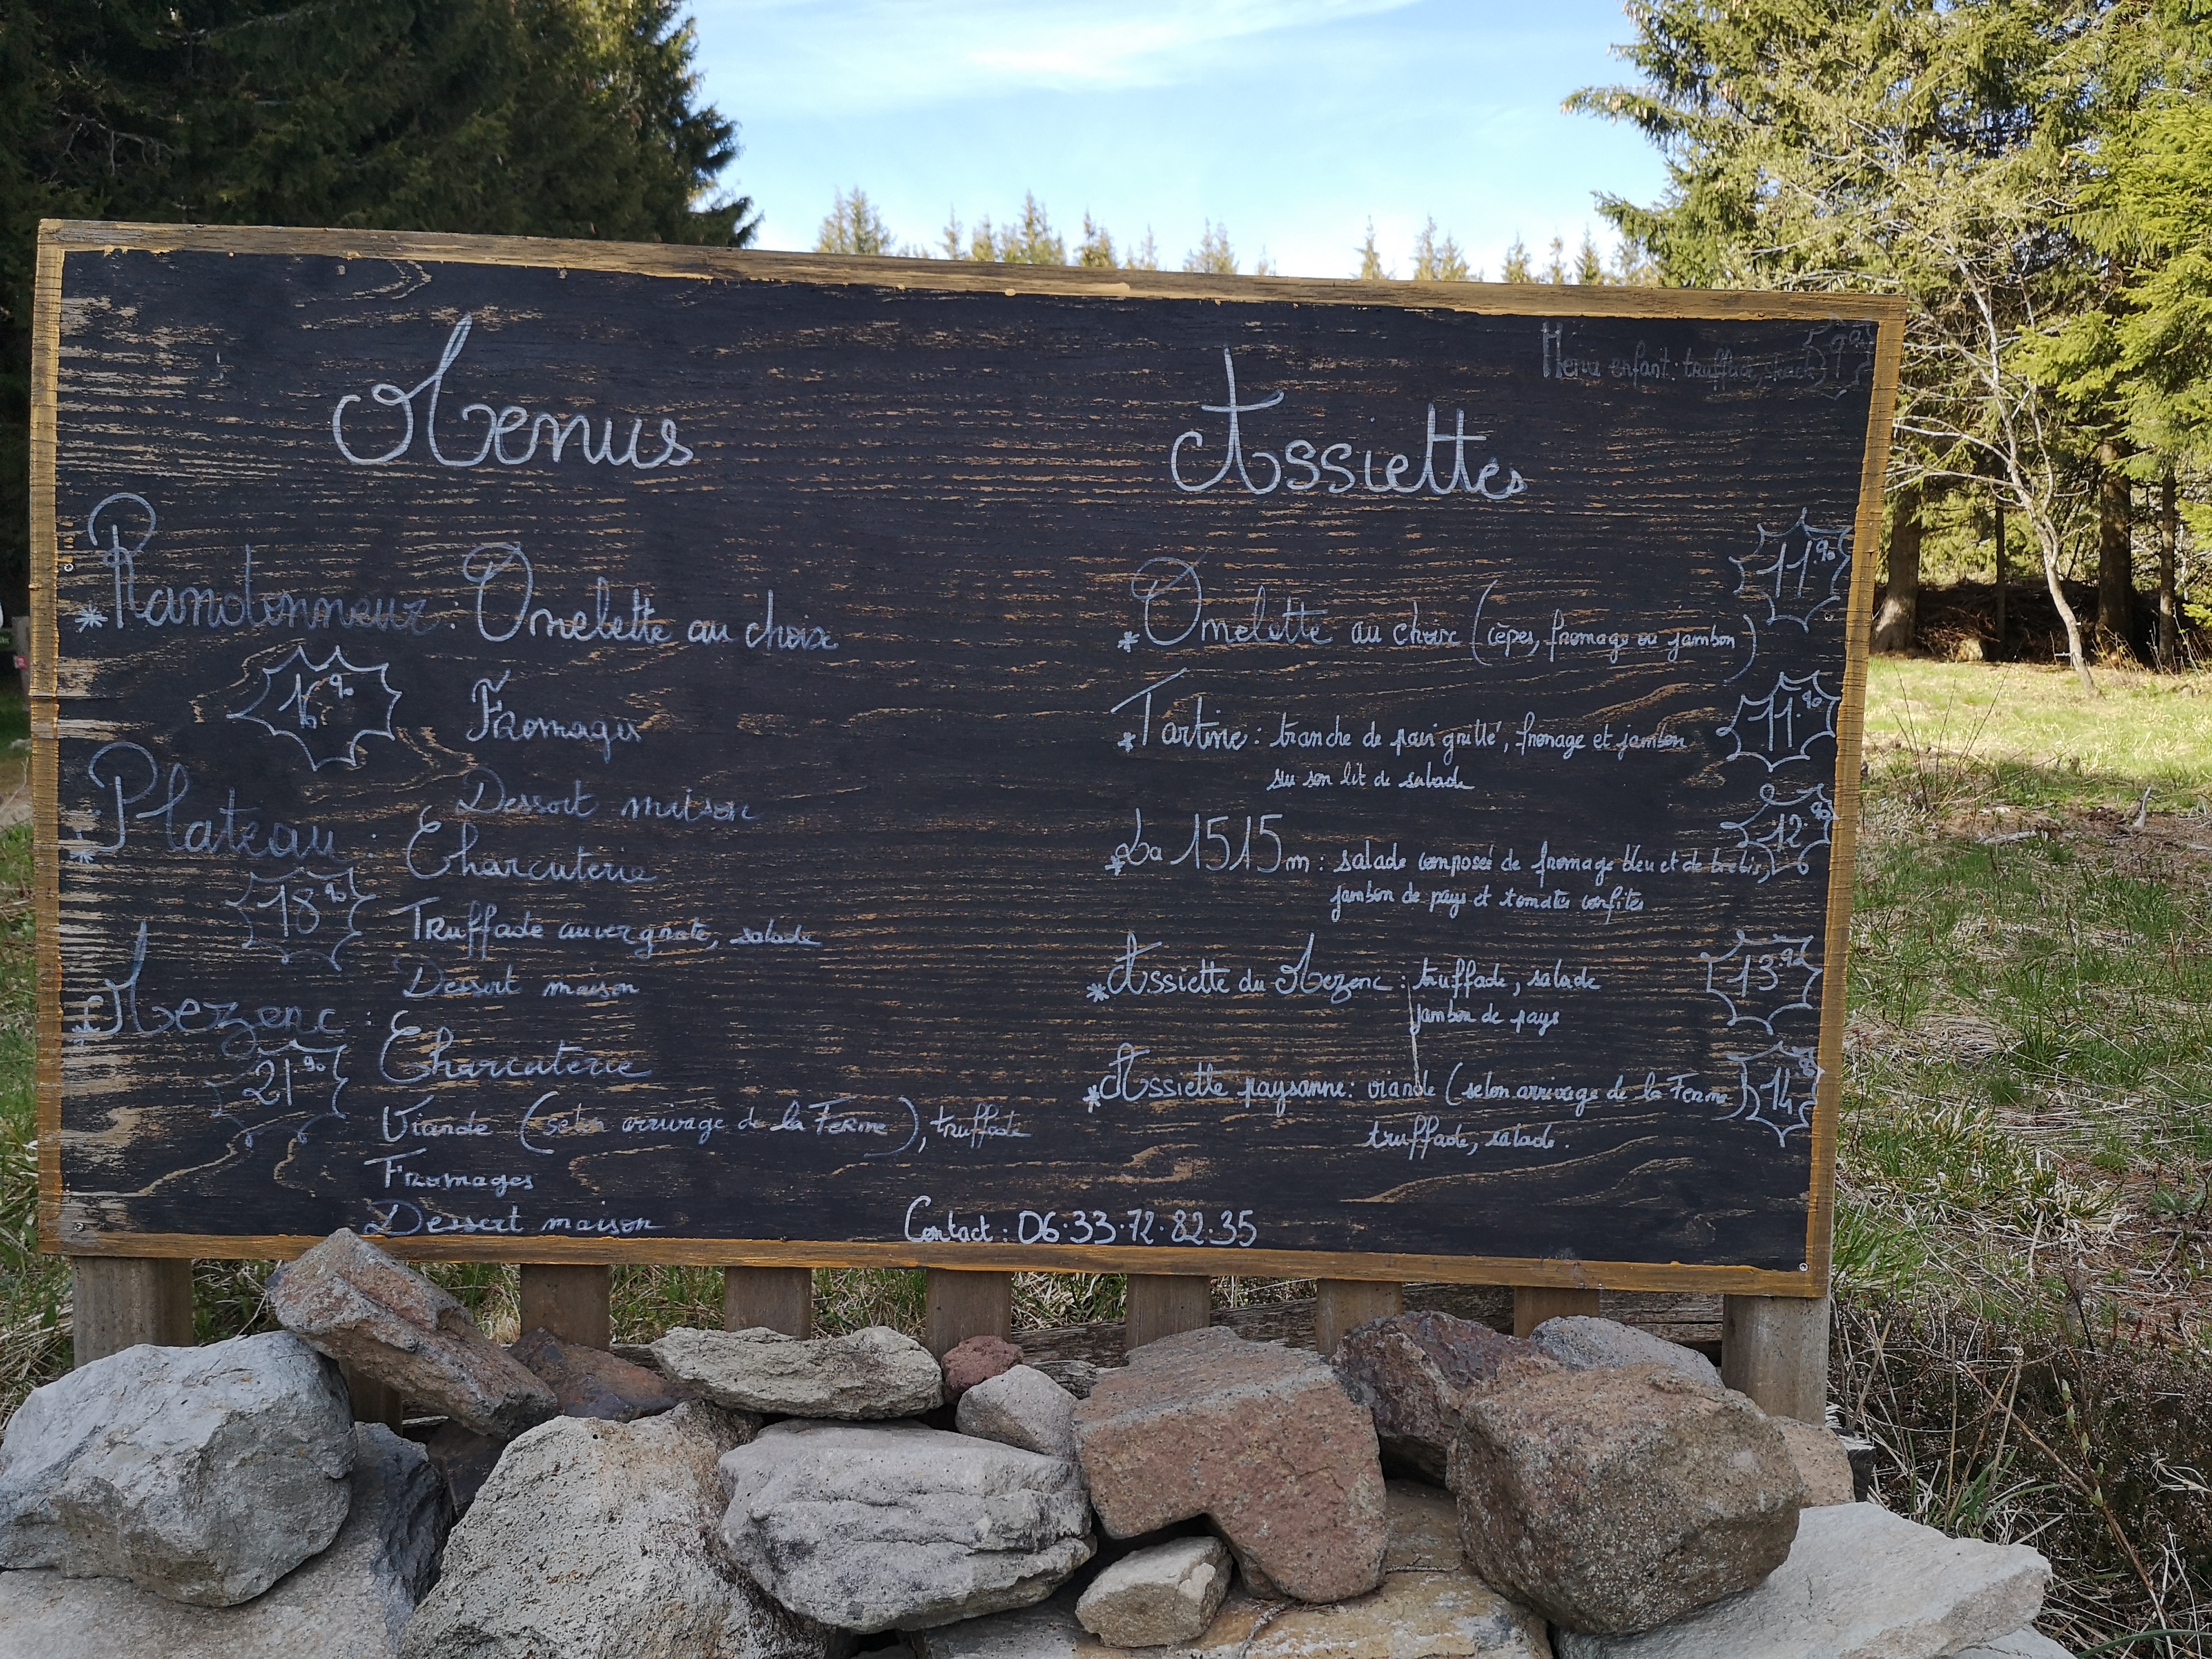 Menus
* Randonneur : Omelette au choix
16.90
Fromages
Dessert maison
* Plateau : Charcuterie
18.90
Truffade auvergnate, salade
Dessert maison
* Mezenc : Charcuterie
21.90
Viande (selon arrivage de la Ferme), truffade
Fromages
Dessert maison
Menu enfant : truffade,
Assiettes
* Omelette au choix (cèpes, fromage ou jambon)
11.90
* Tartine : tranche de pain grillé, fromage et jambon
11.90
sur son lit de salade
* La 1515m : salade composée de fromage bleu et de brebis,
12.90
jambon de pays et tomates confites
* Assiette du Mezenc : truffade, salade
13.90
jambon de pays
* Assiette paysanne : viande (selon arrivage de la Ferme)
14
truffade, salade.
Contact : 06.33.72.82.35